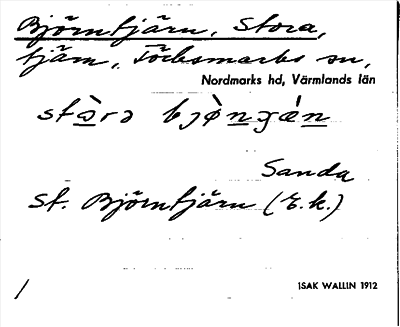 Björntjärn, Stora,
tjärn, Töcksmarks sn,
Nordmarks hd, Värmlands län
Sanda
St. Björntjärn (E.k.)
ISAK WALLIN 1912